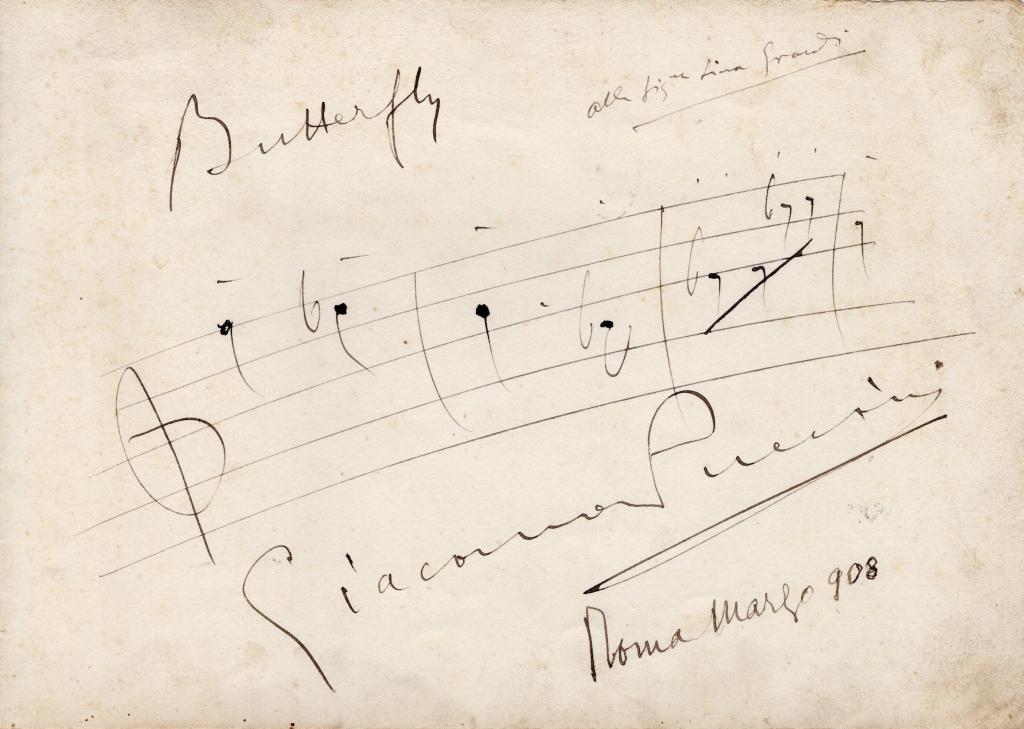 Butterfly
alla Sig.na Lina Grandi
Giacomo Puccini
Roma Marzo 908